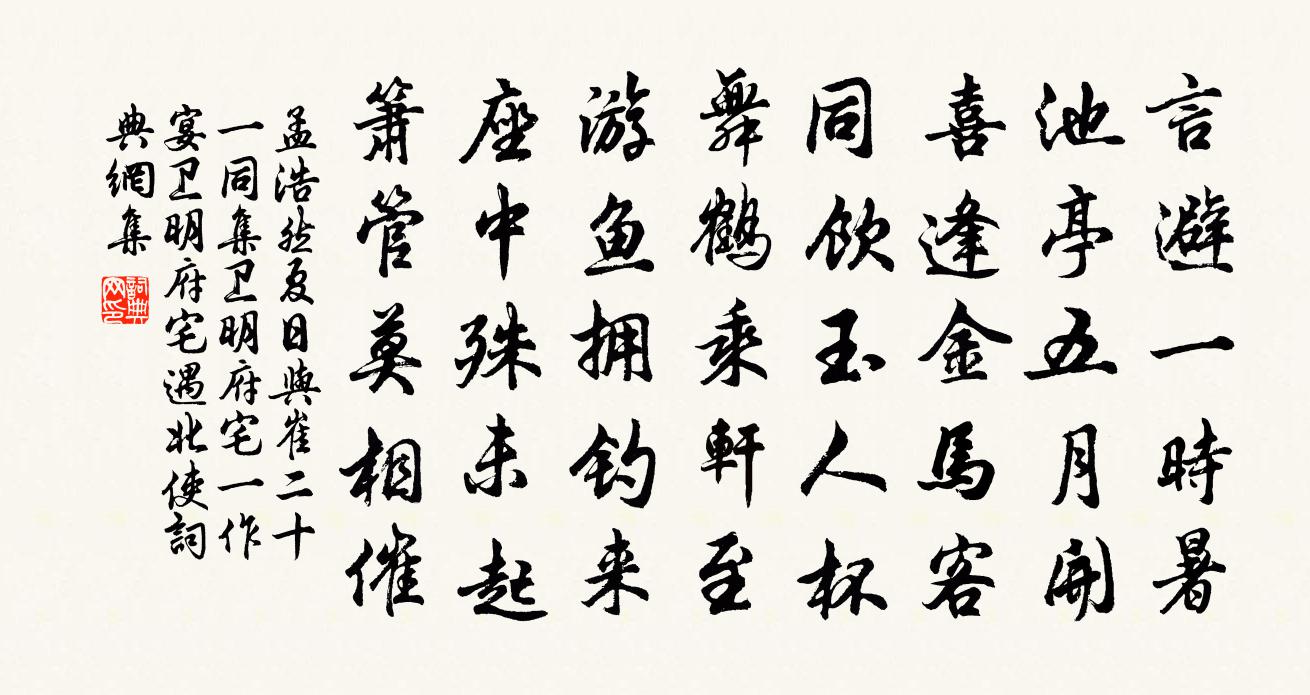 言避一時暑
池亭五月開
喜逢金馬客
同飲玉人杯
舞鶴乘軒至
游鱼拥钓来
座中殊未起
簫管莫相催
孟浩然夏日與崔二十
一同集卫明府宅一作
宴卫明府宅遇北使詞
典網集
詞典网印